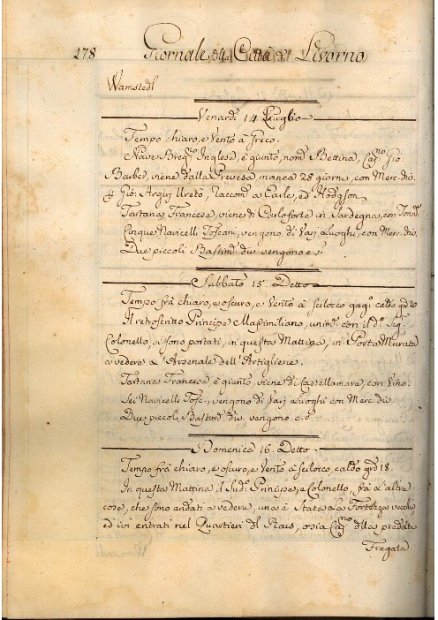 178 Giornale della Città di Livorno
Wamstedl
Venardì 14 Luglio
Tempo chiaro, e Vento à Greco.
Nave Breg.no Inglese, è giunto, nom.e Bettina, Cap.no Gio:
Barber, viene dalla Prevesa, manca 28 giorni, con Merc. div.
Racom.o a Earle, ed Hodgson.
Tartana Francese, viene di Carloforte in Sardegna, con
Cinque Navicelli Toscani, vengono di Varj Luoghi, con Mer. div.
Due piccoli Bastim.ti div. vengono e s
Sabbato 15. Detto
Tempo frà chiaro, e oscuro, e Vento à Scilocco caldo
Il retroscritto Principe Massimiliano, unim.e con il d.o Sig.
Colonello, si sono portati, in questa Mattina, in Porta Murata
a vedere l'Arsenale dell'Artiglierie.
Tartana Francese è giunto, viene di Castellamare, con Vino.
Sei Navicelli Tosc. vengono di Varj Luoghi con Merc. div.
Due piccoli Bastim.ti div. vengono e s
Domenica 16. Detto
Tempo frà chiaro, e oscuro, e Vento à Scilocco, caldo grd 18.
In questa Mattina il Sud.o Principe, e Colonello, frà l'altre
cose, che sono andati a vedere, una è Stata la Fortezza vecchia
ed ivi entrati nel Quartieri del osia della predetta
Fregata